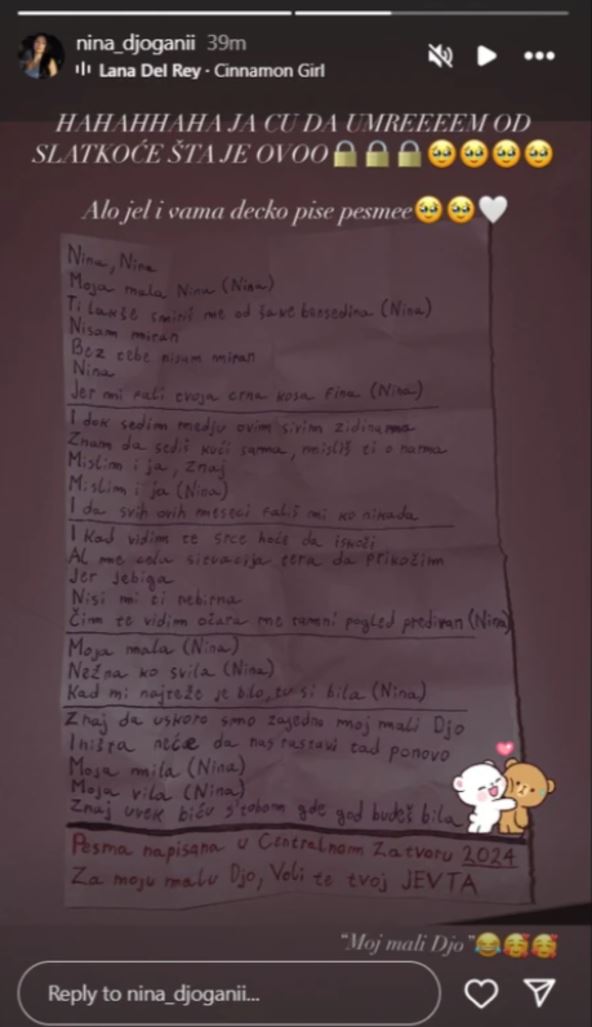 nina_djoganii 39m
Lana Del Rey · Cinnamon Girl
HAHAHHAHA JA CU DA UMREEEEM OD
SLATKOĆE ŠTA JE OVOO🔒🔒🔒🥹🥹🥹🥹
Alo jel i vama decko pise pesmee🥹🥹🤍
Nina, Nina
Moja mala Nina (Nina)
Ti lakše smiriš me od šake bensedina (Nina)
Nisam miran
Bez tebe nisam miran
Nina
Jer mi fali tvoja crna kosa fina (Nina)
I dok sedim medju ovim sivim zidinama
Znam da sediš kući sama, misliš ti o nama
Mislim i ja, znaj
Mislim i ja (Nina)
I da svih ovih meseci fališ mi ko nikada
I kad vidim te srce hoće da iskoči
Al me cela situacija tera da prikočim
Jer jebiga
Nisi mi ti nebirna
Čim te vidim očara me tamni pogled predivan (Nina)
Moja mala (Nina)
Nežna ko svila (Nina)
Kad mi najteže je bilo, tu si bila (Nina)
Znaj da uskoro smo zajedno moj mali Djo
I ništa neće da nas rastavi tad ponovo
Moja mila (Nina)
Moja vila (Nina)
Znaj uvek biću s'tobom gde god budeš bila
Pesma napisana u Centralnom Zatvoru 2024
Za moju malu Djo, Voli te tvoj JEVTA
"Moj mali Djo"😂🥰🥰
Reply to nina_djoganii...